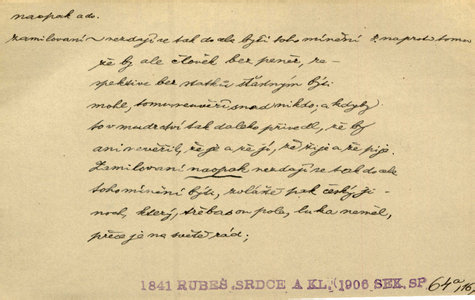 naopak a do.
zamilovaní ~ nezdají se tak do ale býti toho mínění z naprost tomu
že by ale člověk bez peněz, re-
spektive bez statků šťádným býti
mohl, tomu neuvěří snad nikdo: a kdyby
to v mudrctví tak daleko přivedl, že by
ani nevěřil, že je a že jí, že žije a že pije.
Zamilovaní naopak nezdají se tak do ale
toho mínění býti, zvláště pak český ji-
noch, který, třebas on pole, luka neměl,
přece je na světě rád;
1841 RUBEŠ. SRDCE A KL. (1906 SEK. SP. 64a,16,